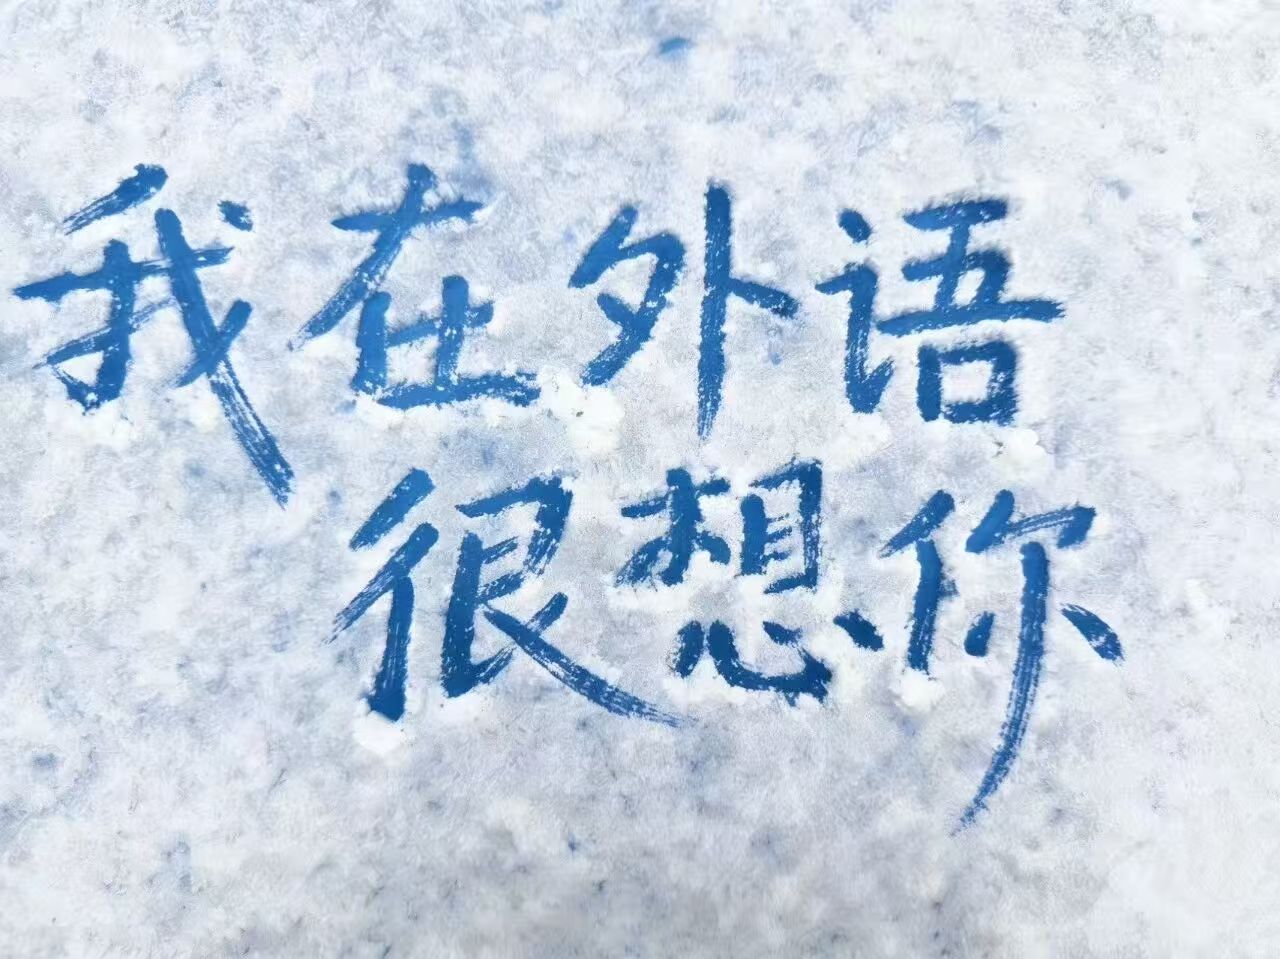 我在外语
很想你